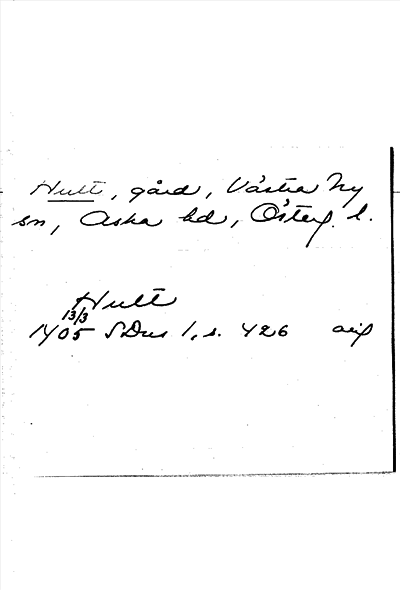 Hult, gård, Västra Ny
sn, Aska hd, Österg. l.
Hult
13/3
1405 SDns 1, s. 426 avs